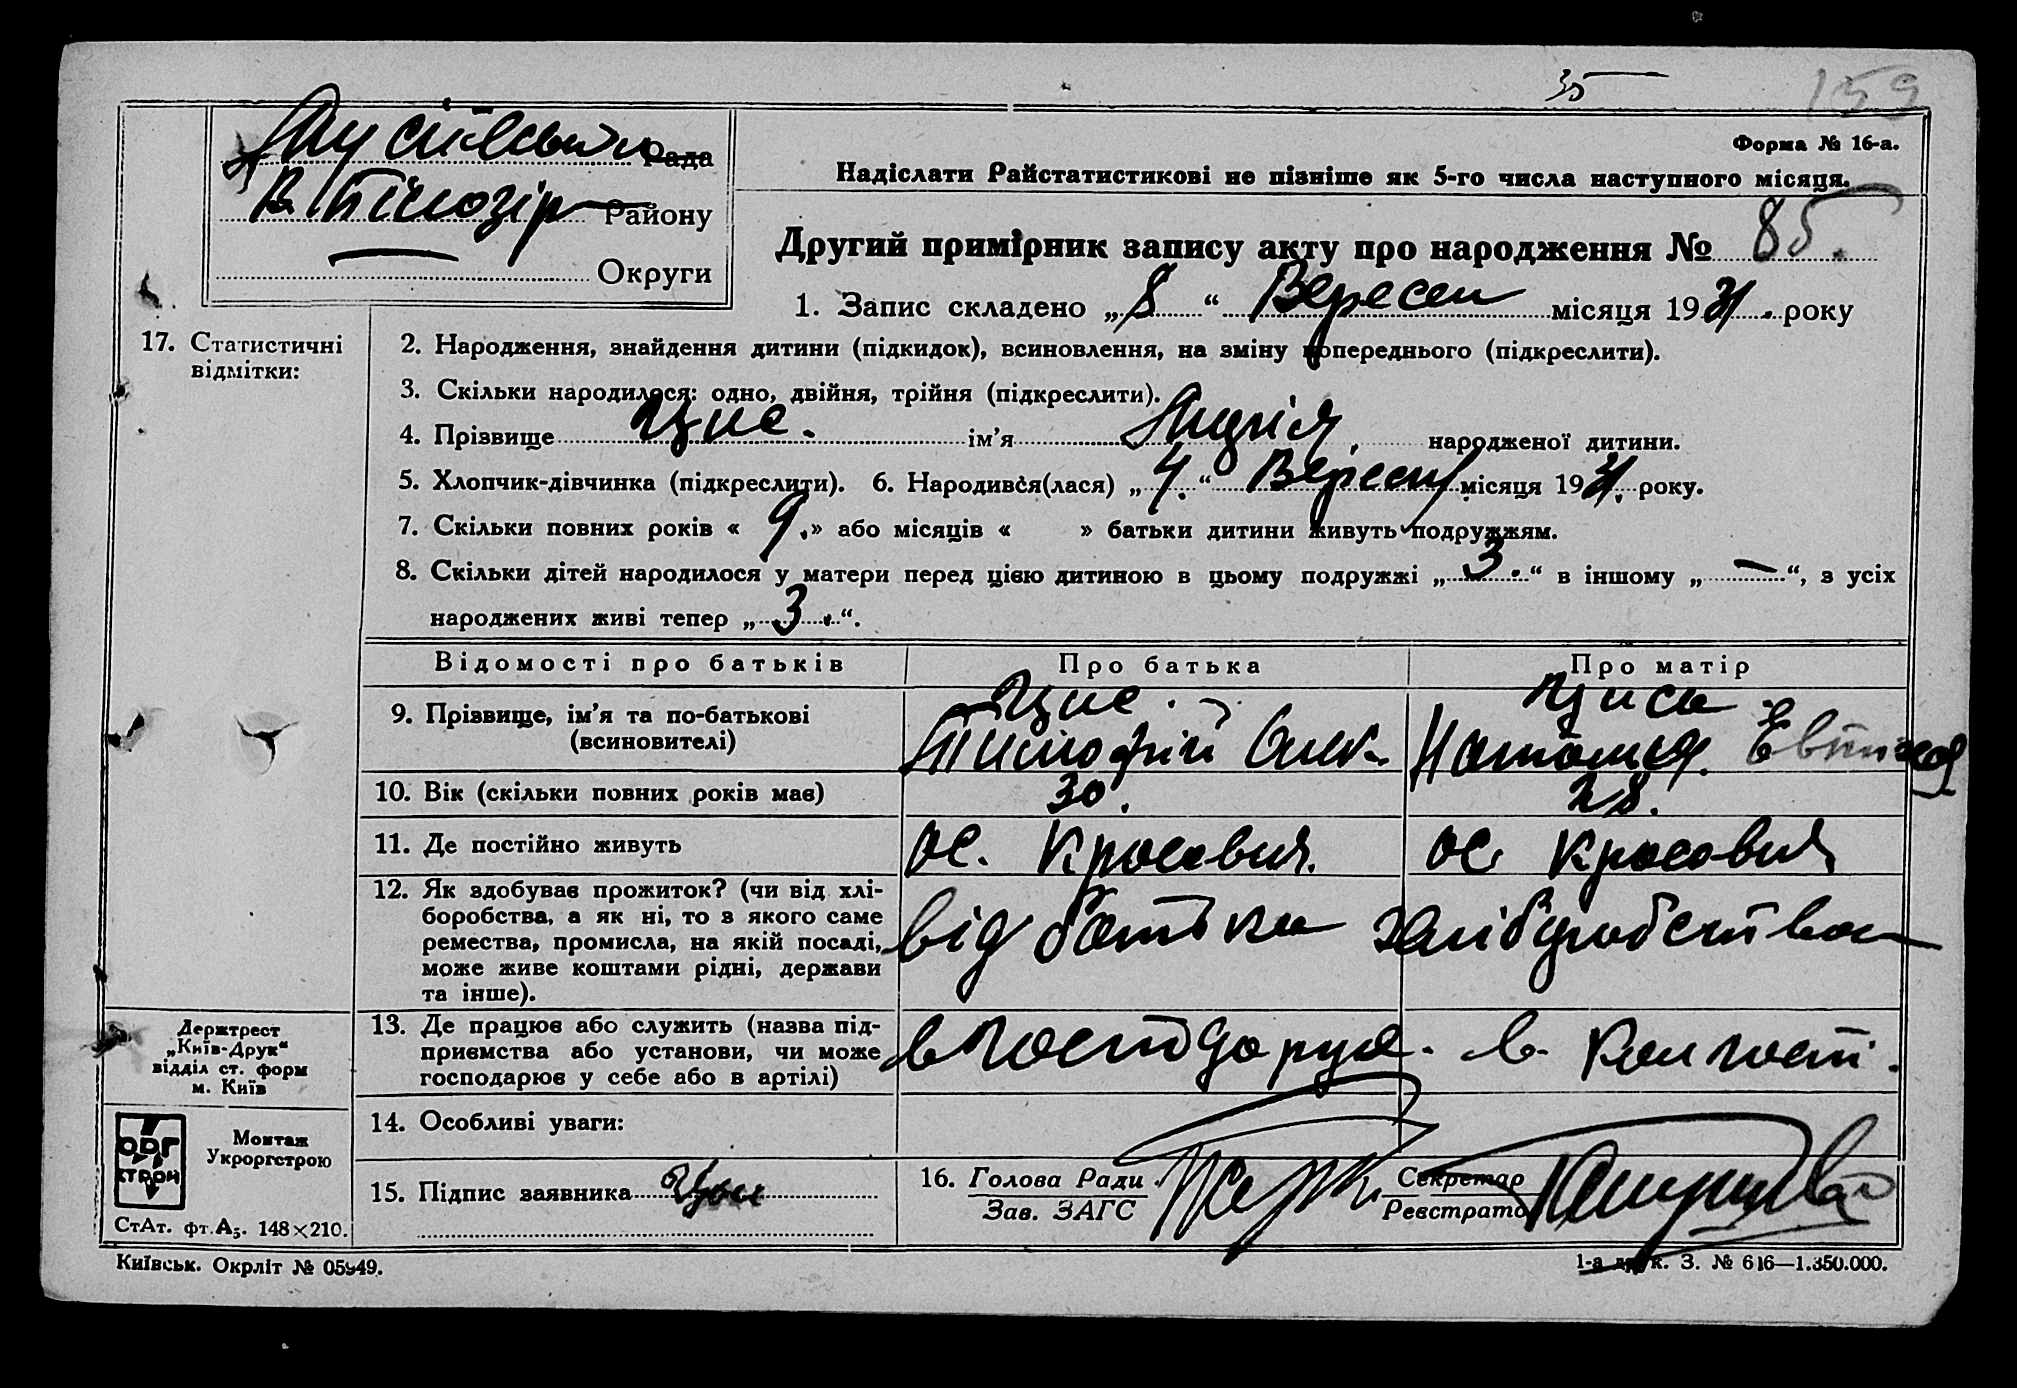 35
159
Рада
В. Білозір Району
Округи
Форма № 16-а.
Надіслати Райстатистикові не пізніше як 5-го числа наступного місяця.
Другий примірник запису акту про народження № 85.
1. Запис складено „ 8 “ Вересен місяця 1931. року
17. Статистичні
відмітки:
2. Народження, знайдення дитини (підкидок), всиновлення, на зміну попереднього (підкреслити).
3. Скільки народилося: одно, двійня, трійня (підкреслити).
4. Прізвище Цис. ім’я народженої дитини.
5. Хлопчик-дівчинка (підкреслити). 6. Народився(лася) „ 4. “ Вересня місяця 1931. року.
7. Скільки повних років « 9. » або місяців « » батьки дитини живуть подружжям.
8. Скільки дітей народилося у матери перед цією дитиною в цьому подружжі „ 3. “ в іншому „ — “, з усіх
народжених живі тепер „ 3. “.
Відомості про батьків Про батька Про матір
9. Прізвище, ім’я та по-батькові
(всиновителі)
Цис.
Тимофій Олек.
Циса
Наталия.
10. Вік (скільки повних років має) 30. 28.
11. Де постійно живуть ос. Красовия. ос Красовия
12. Як здобував прожиток? (чи від хлі-
боробства, а як ні, то з якого саме
ремества, промисла, на якій посаді,
може живе коштами рідні, держави
та інше).
від батька
13. Де працює або служить (назва під-
приємства або установи, чи може
господарює у себе або в артілі)
в господарця. в Колгості.
Держтрест
„Київ-Друк“
відділ ст. форм
м. Київ
14. Особливі уваги:
ОРГ
СТРОЙ
Монтаж
Укроргстрою
СтАт. фт. А5. 148×210.
15. Підпис заявника Цис
16. Голова Ради
Зав. ЗАГС
Секретар
Реєстратор
Київськ. Окрліт № 05949.
1-а друк. З. № 616—1.350.000.